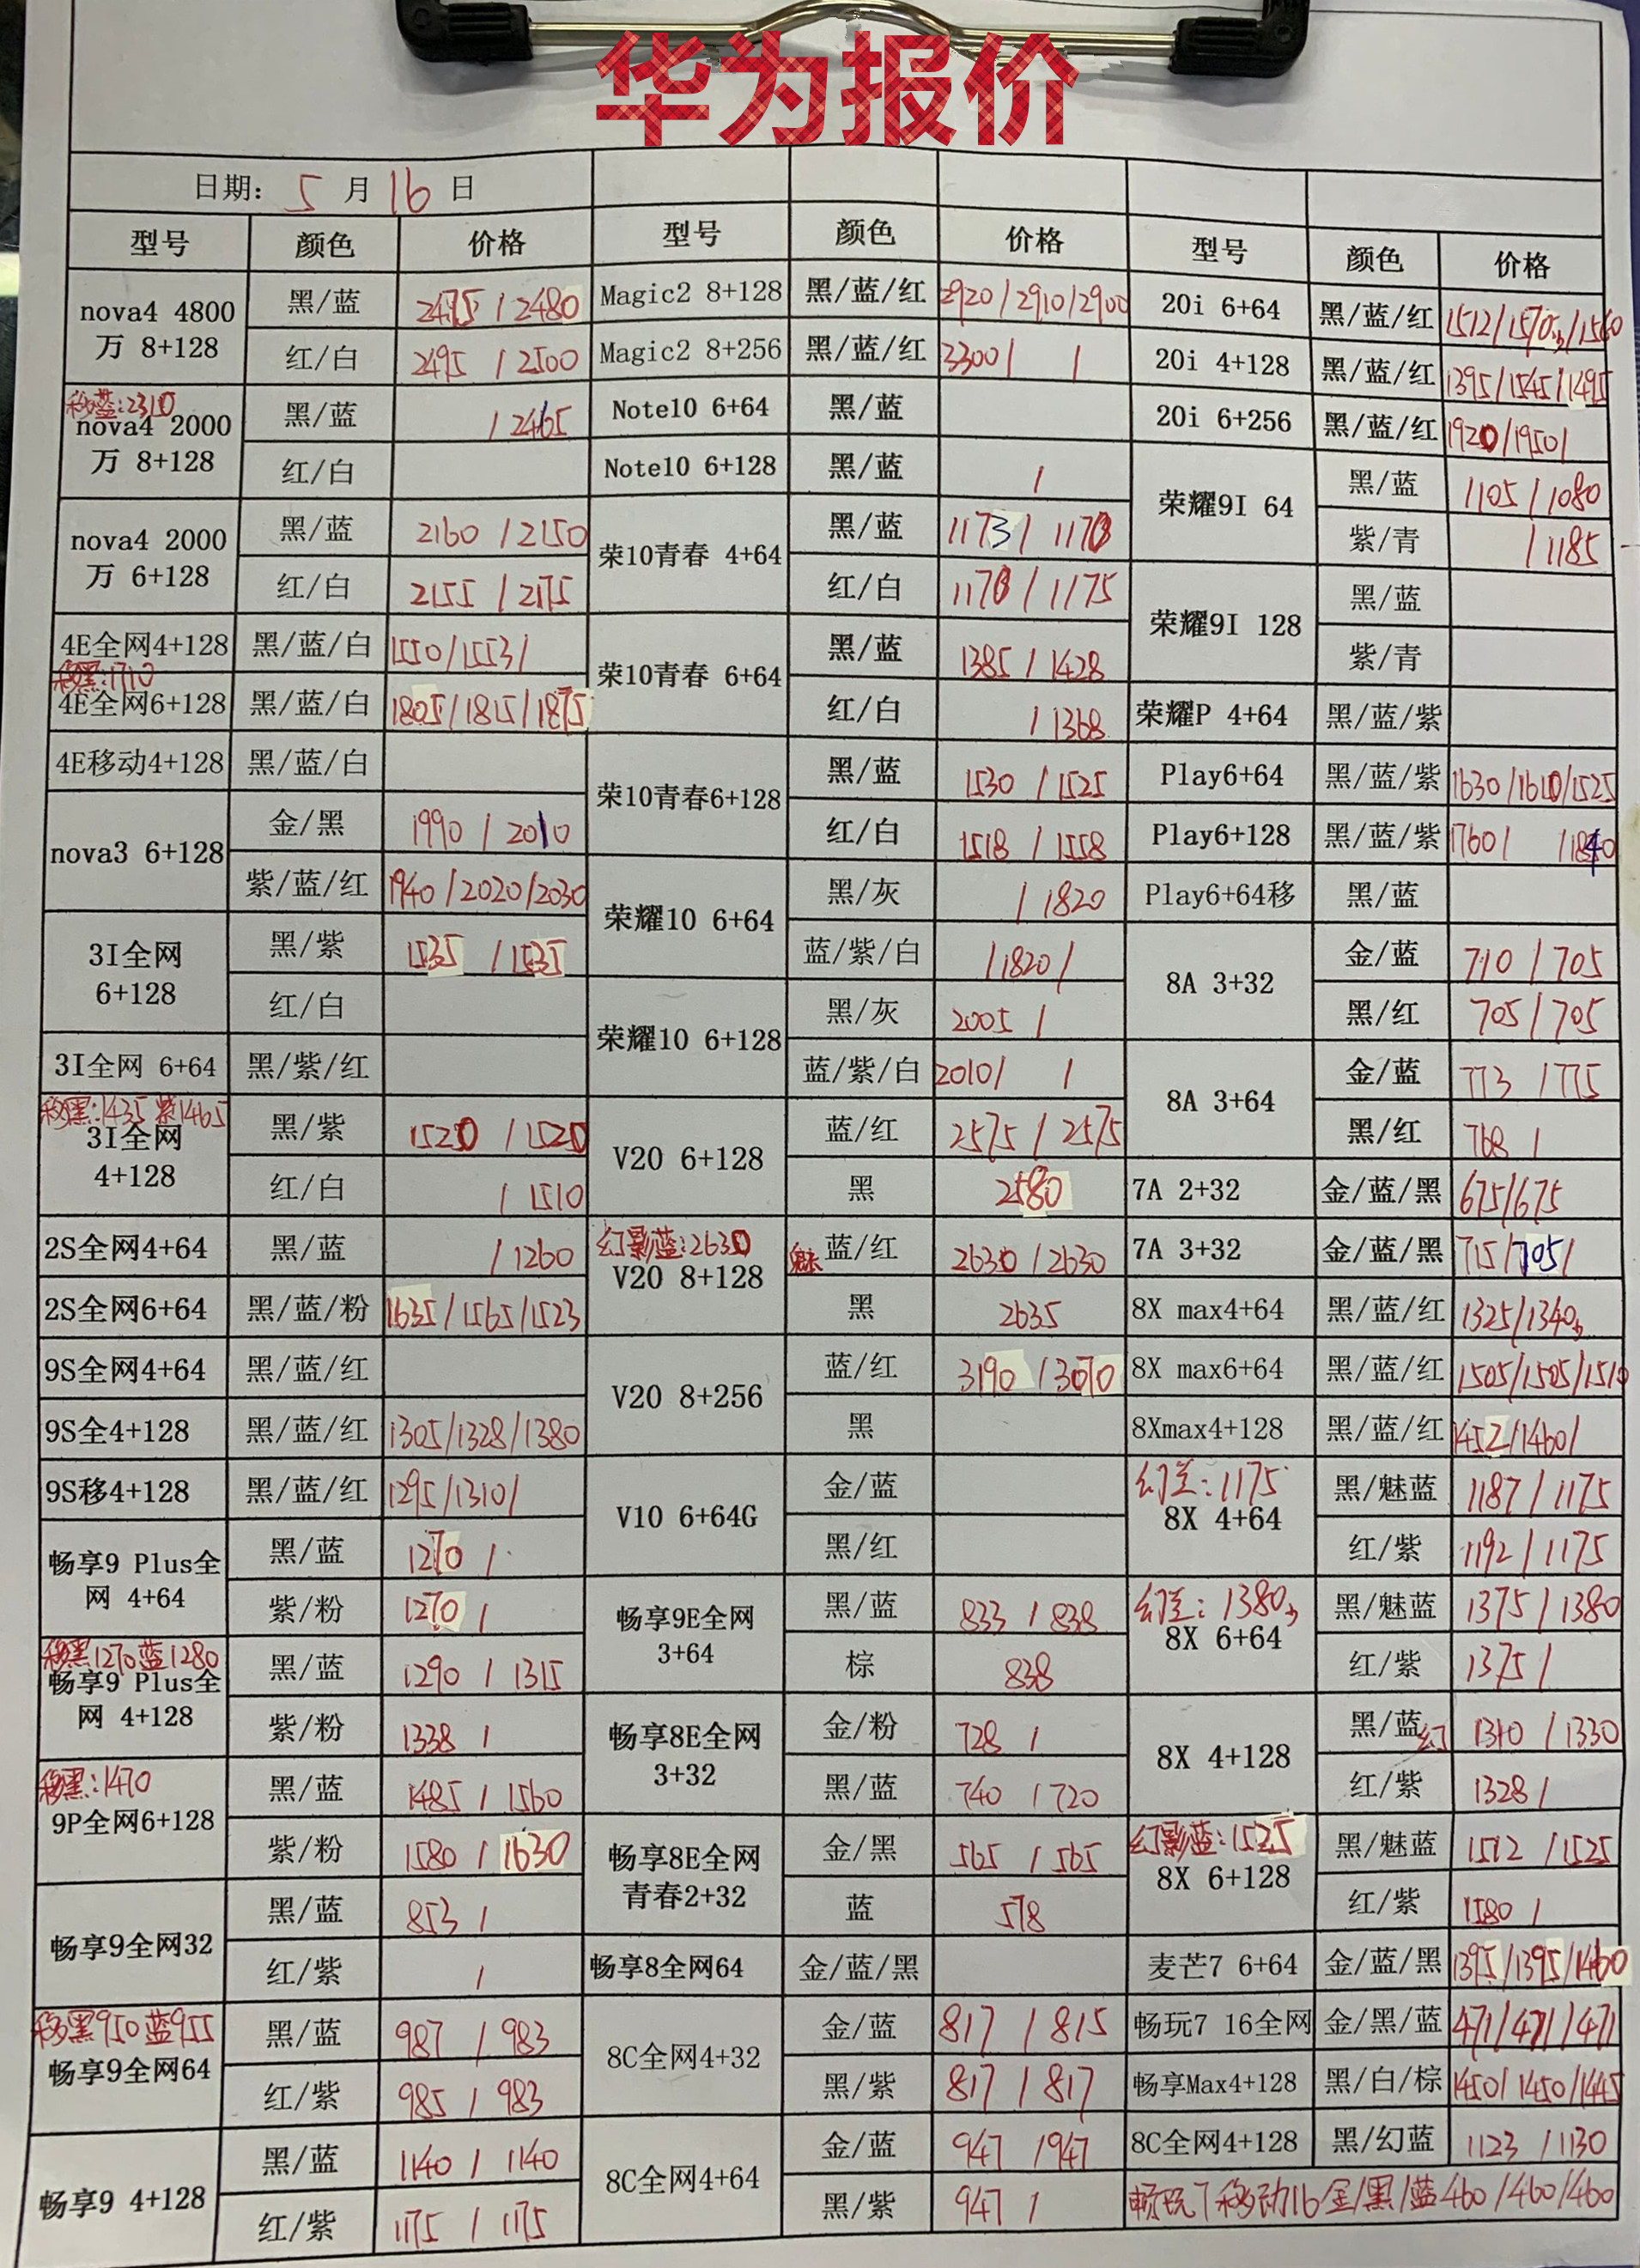 华为报价
日期: 5 月 16 日
型号 颜色 价格 型号 颜色 价格 型号 颜色 价格
nova4 4800万 8+128 黑/蓝 2475 / 2480
红/白 2495 / 2500
移蓝:2310
nova4 2000万 8+128 黑/蓝 / 2465
红/白
nova4 2000万 6+128 黑/蓝 2160 / 2150
红/白 2155 / 2175
4E全网4+128 黑/蓝/白 1550/1553/
移黑:1710
4E全网6+128 黑/蓝/白 1805/1815/1875
4E移动4+128 黑/蓝/白
nova3 6+128 金/黑 1990 / 2010
紫/蓝/红 1940/2020/2030
3I全网 6+128 黑/紫 1535 / 1535
红/白
3I全网 6+64 黑/紫/红
移黑:1435 紫1465
3I全网 4+128 黑/紫 1520 / 1520
红/白 / 1510
2S全网4+64 黑/蓝 / 1260
2S全网6+64 黑/蓝/粉 1635/1565/1523
9S全网4+64 黑/蓝/红
9S全4+128 黑/蓝/红 1305/1328/1380
9S移4+128 黑/蓝/红 1295/1310/
畅享9 Plus全网 4+64 黑/蓝 1270 /
紫/粉 1270 /
移黑1270蓝1280
畅享9 Plus全网 4+128 黑/蓝 1290 / 1315
紫/粉 1338 /
移黑:1470
9P全网6+128 黑/蓝 1485 / 1560
紫/粉 1580 / 1630
畅享9全网32 黑/蓝 853 /
红/紫 /
移黑950蓝955
畅享9全网64 黑/蓝 987 / 983
红/紫 985 / 983
畅享9 4+128 黑/蓝 1140 / 1140
红/紫 1175 / 1175
Magic2 8+128 黑/蓝/红 2920/2910/2900
Magic2 8+256 黑/蓝/红 3300/ /
Note10 6+64 黑/蓝
Note10 6+128 黑/蓝 /
荣10青春 4+64 黑/蓝 1173/ 1178
红/白 1178/ 1175
荣10青春 6+64 黑/蓝 1385 / 1428
红/白 / 1368
荣10青春6+128 黑/蓝 1530 / 1525
红/白 1518 / 1558
荣耀10 6+64 黑/灰 / 1820
蓝/紫/白 /1820/
荣耀10 6+128 黑/灰 2005 /
蓝/紫/白 2010/ /
V20 6+128 蓝/红 2575 / 2575
黑 2580
幻影蓝:2630
V20 8+128 魅 蓝/红 2630 / 2630
黑 2635
V20 8+256 蓝/红 3190 / 3070
黑
V10 6+64G 金/蓝
黑/红
畅享9E全网 3+64 黑/蓝 833 / 838
棕 838
畅享8E全网 3+32 金/粉 728 /
黑/蓝 740 / 720
畅享8E全网青春2+32 金/黑 565 / 565
蓝 578
畅享8全网64 金/蓝/黑
8C全网4+32 金/蓝 817 / 815
黑/紫 817 / 817
8C全网4+64 金/蓝 947 /947
黑/紫 947 /
20i 6+64 黑/蓝/红 1512/1570/1560
20i 4+128 黑/蓝/红 1395/1545/1495
20i 6+256 黑/蓝/红 1920/1950/
荣耀9I 64 黑/蓝 1105/1080
紫/青 / 1185
荣耀9I 128 黑/蓝
紫/青
荣耀P 4+64 黑/蓝/紫
Play6+64 黑/蓝/紫 1630/1610/1525
Play6+128 黑/蓝/紫 1760/ /1840
Play6+64移 黑/蓝
8A 3+32 金/蓝 710 / 705
黑/红 705 / 705
8A 3+64 金/蓝 773 / 775
黑/红 768 /
7A 2+32 金/蓝/黑 675/675
7A 3+32 金/蓝/黑 715/705/
8X max4+64 黑/蓝/红 1325/1340
8X max6+64 黑/蓝/红 1505/1505/1510
8Xmax4+128 黑/蓝/红 1452/1460/
幻兰:1175
8X 4+64 黑/魅蓝 1187 / 1175
红/紫 1192 / 1175
幻兰:1380
8X 6+64 黑/魅蓝 1375 / 1380
红/紫 1375 /
8X 4+128 黑/蓝幻 1310 / 1330
红/紫 1328 /
幻影蓝:1525
8X 6+128 黑/魅蓝 1512 / 1525
红/紫 1580 /
麦芒7 6+64 金/蓝/黑 1395/1395/1460
畅玩7 16全网 金/黑/蓝 471/471/471
畅享Max4+128 黑/白/棕 1450/1450/1445
8C全网4+128 黑/幻蓝 1123 / 1130
畅玩7移动16金/黑/蓝460/460/460